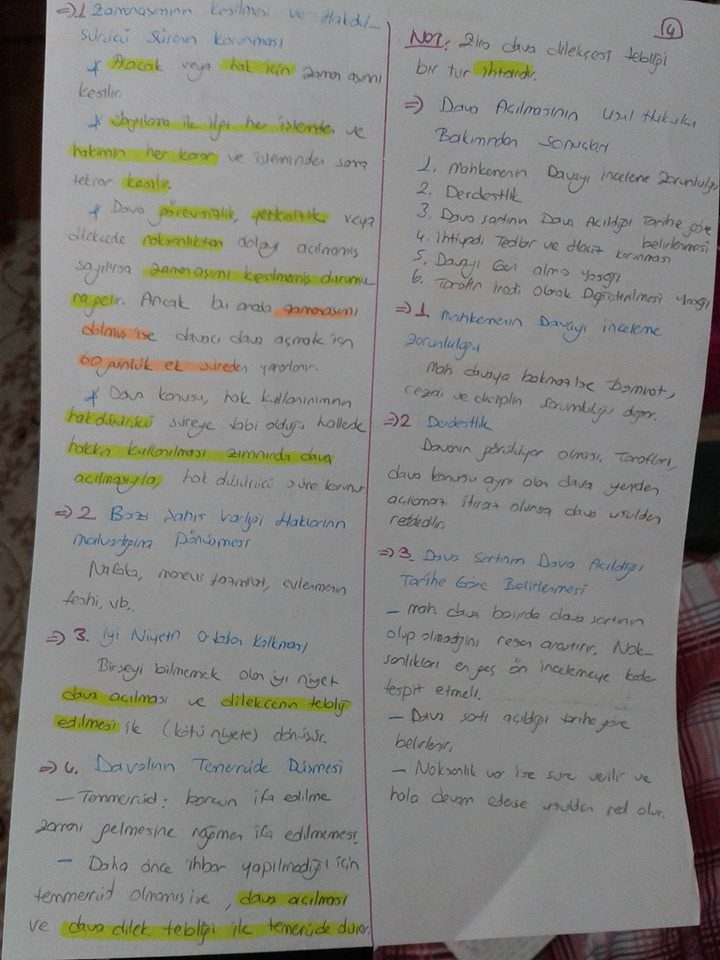 => 1 Zamanaşımının Kesilmesi ve Hakdü-
şürücü Sürenin Korunması
* Alacak veya hak için zaman aşımı
kesilir.
* Yargılama ile ilgili her işlemde ve
hakimin her karar ve isleminden sonra
tekrar kesilir.
* Dava görevsizlik, yetkisizlik veya
dilekçede noksanlıktan dolayı açılmamış
sayılırsa zamanaşımı kesilmemiş durumu
Ancak bu arada zamanaşımı
dolmuş ise davacı dava açmak için
60 günlük ek süreden yararlanır.
* Dava konusu, hak kullanımının
hakdüşürücü süreye tabi olduğu hallerde
hakkın kullanılması zımnında dava
açılmasıyla, hak düşürücü süre korunur
=> 2 Bazı Şahıs Varlığı Haklarının
malvarlığına Dönüşmesi
Nafaka, manevi tazminat, evlenmenin
feshi, vb.
=> 3. İyi Niyetin Ortadan Kalkması
Birşeyi bilmemek olan iyi niyet
dava açılması ve dilekçenin tebliğ
edilmesi ile (kötü niyete) dönüşür.
=> 4. Davalının Temerrüde Düşmesi
- Temmerrüd: borcun ifa edilme
zamanı gelmesine rağmen ifa edilmemesi.
- Daha önce ihbar yapılmadığı için
temmerrüd olmamış ise, dava açılması
ve dava dilek tebliği ile temerrüde düşer.
4
NOT: Zira dava dilekçesi tebliği
bir tür ihtardır.
=> Dava Açılmasının Usul Hukuku
Bakımından Sonuçları
1. Mahkemenin Davayı inceleme zorunluluğu
2. Derdestlik
3. Dava şartının Dava Açıldığı Tarihe göre
belirlenmesi
4. İhtiyadi Tedbir ve Haciz korunması
5. Davayı Geri alma yasağı
6. Tarafın İradi Olarak Değiştirilmesi Yasağı
=> 1. Mahkemenin Davayı inceleme
zorunluluğu
Mah davaya bakmaz ise tazminat,
cezai ve disiplin sorumluluğu doğar.
=> 2 Derdestlik
Davanın görülüyor olması. Tarafları,
dava konusu aynı olan dava yeniden
açılamaz itiraz olunsa dava usulden
reddedilir.
=> 3. Dava Şartının Dava Açıldığı
Tarihe Göre Belirlenmesi
- mah dava başında dava şartının
olup olmadığını resen araştırır. Nok-
sanlıkları en geç ön incelemeye kadar
tespit etmeli.
- Dava şartı açıldığı tarihe göre
belirlenir.
- Noksanlık var ise süre verilir ve
hala devam ederse usulden red olur.